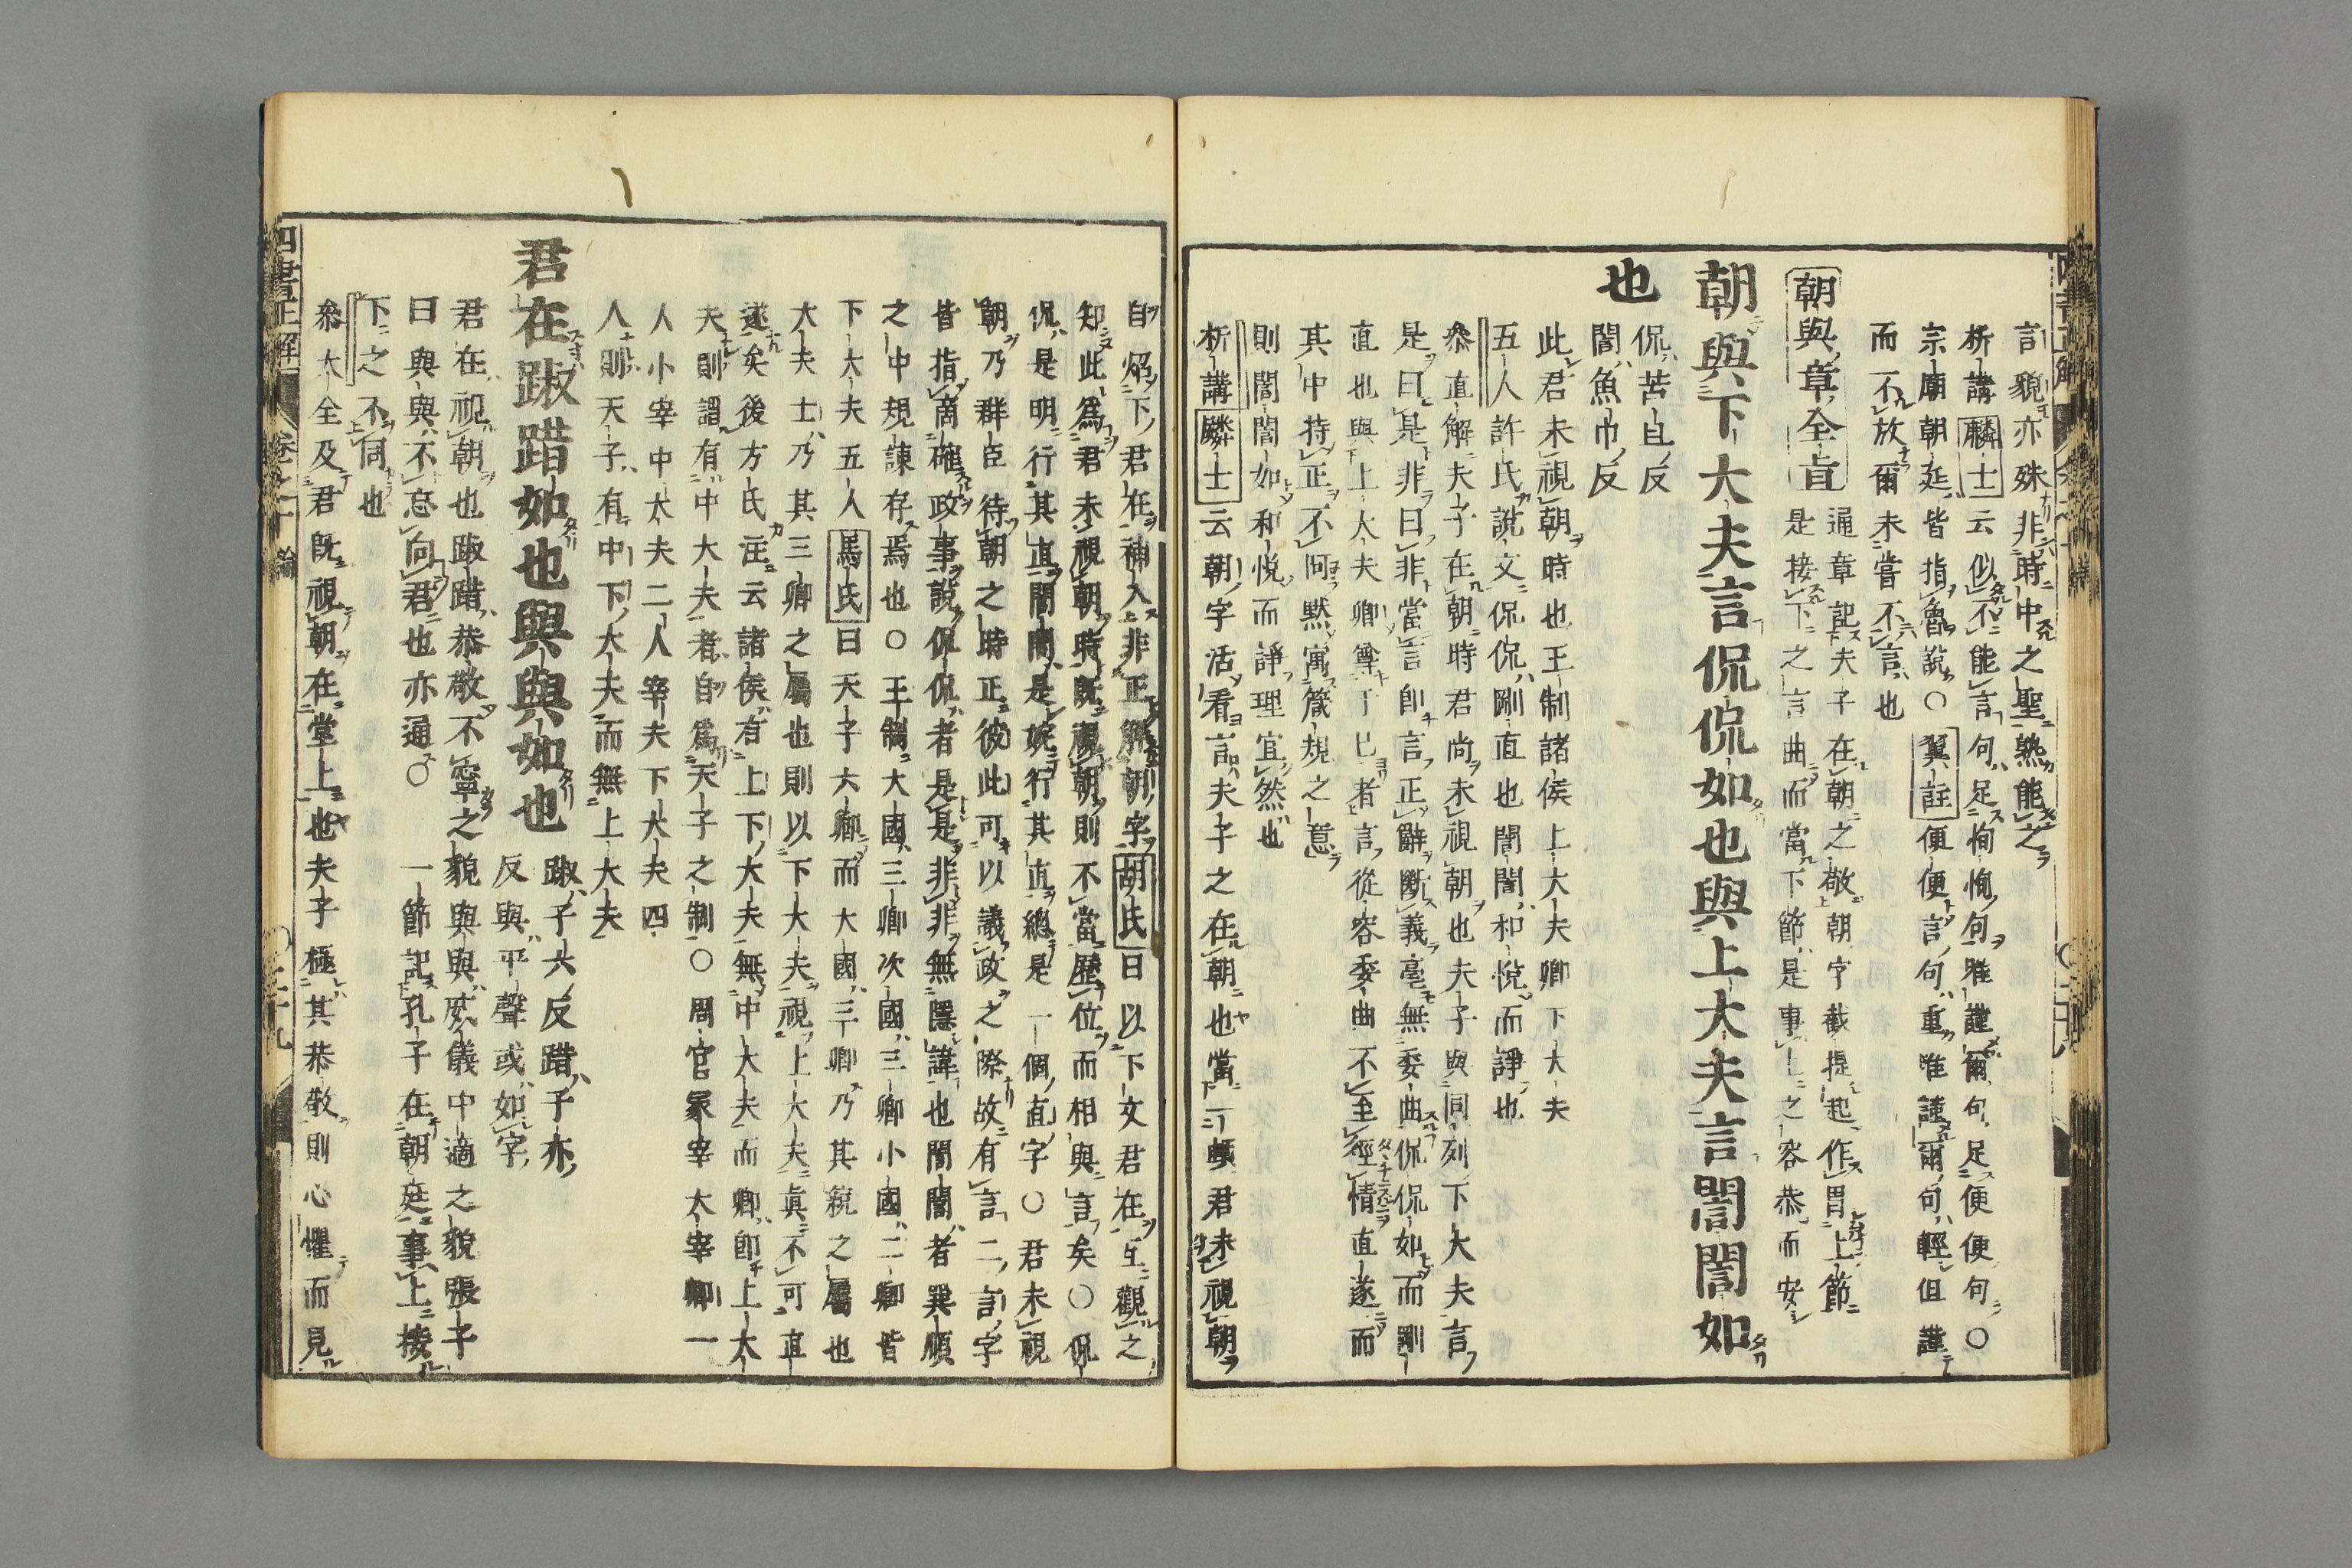 言貌亦殊非時中之聖孰能之
析講麟士云似不能言句足恂恂句唯謹爾句足便便句〇
宗廟朝廷皆指魯說〇翼註便便言句重唯謹爾句輕但謹
而不放爾未嘗不言也
朝與章全旨
通章記夫子在朝之敬朝字截提起作冒上節
是接下之言曲而當下節是事上之容恭而安
朝與下大夫言侃侃如也與上大夫言誾誾如
也
侃苦旦反
誾魚巾反
此君未視朝時也王制諸侯上大夫卿下大夫
五人許氏說文侃侃剛直也誾誾和悅而諍也
叅直解夫子在朝時君尚未視朝也夫子與同列下大夫言
是曰是非曰非當言卽言正辭斷義毫無委曲侃侃如而剛
直也與上大夫卿尊于己者言從容委曲不至徑情直遂而
其中持正不阿默寓箴規之意
則誾誾如和悅而諍理宜然也
析講麟士云朝字活看言夫子之在朝也當一頓君未視朝
自炤下君在補入非正解朝字胡氏曰以下文君在互觀之
知此爲君未視朝時旣視朝則不當歷位而相與言矣〇侃
侃是明行其直誾誾是婉行其直總是一個直字〇君未視
朝乃群臣待朝之時正彼此可以議政之際故有言二言字
皆指商確政事說侃侃者是是非非無隱諱也誾誾者巽順
之中規諫存焉也〇王制大國三卿次國三卿小國二卿皆
下大夫五人馬氏曰天子六卿而大國三卿乃其貌之屬也
大夫士乃其三卿之屬也則以下大夫視上大夫眞不可直
遂矣後方氏註云諸侯有上下大夫無中大夫而卿卽上大
夫則謂有中大夫者自爲天子之制〇周官冢宰太宰卿一
人小宰中大夫二人宰夫下大夫四
人則天子有中下大夫而無上大夫
君在踧踖如也與與如也
踧子六反踖子亦
反與平聲或如字
君在視朝也踧踖恭敬不寧之貌與與威儀中適之貌張子
曰與與不忘向君也亦通〇一節記孔子在朝廷事上接
下之不同也
叅大全及君旣視朝在堂上也夫子極其恭敬則心懼而見
四書正解
卷之十
論